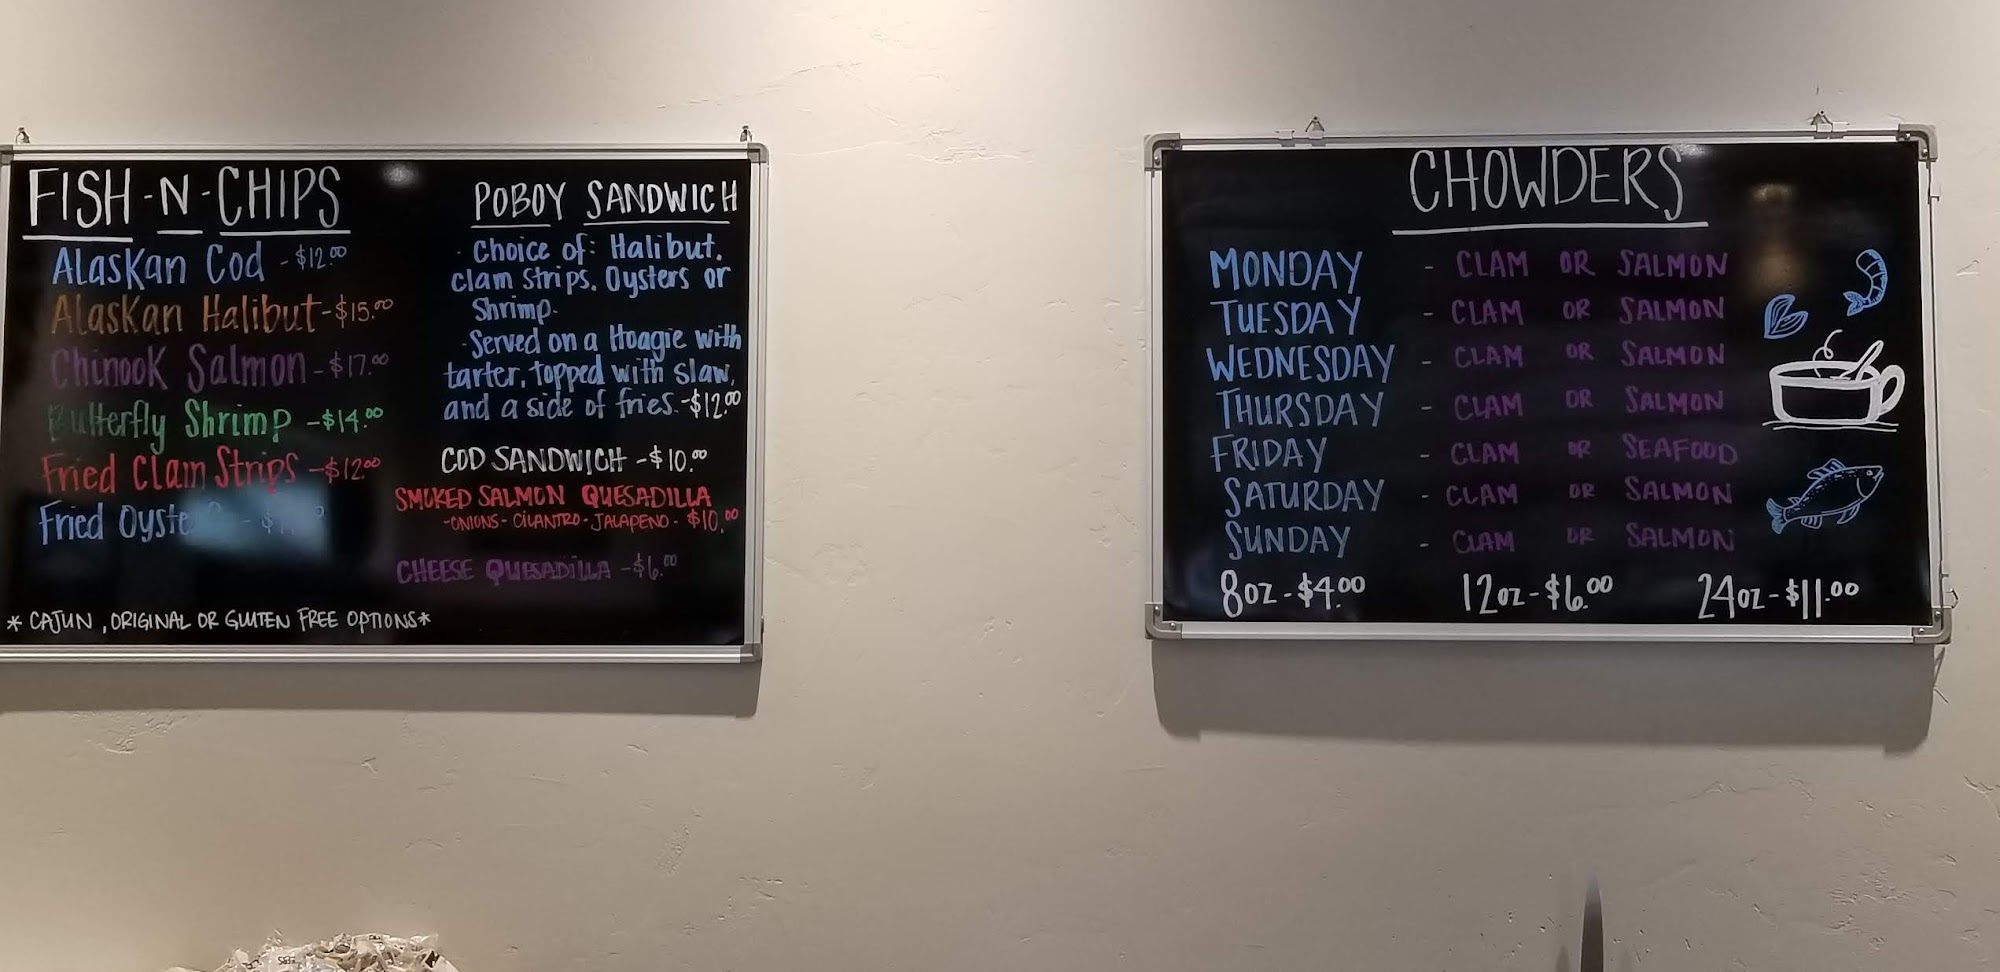 FISH-N-CHIPS
Alaskan Cod - $12.00
Alaskan Halibut - $15.00
Chinook Salmon - $17.00
Butterfly Shrimp - $14.00
Fried Clam Strips - $12.00
Fried
* CAJUN, ORIGINAL OR GLUTEN FREE OPTIONS *
POBOY SANDWICH
· Choice of: Halibut,
clam strips, Oysters or
Shrimp.
· Served on a Hoagie with
tarter, topped with slaw,
and a side of fries - $12.00
COD SANDWICH - $10.00
SMOKED SALMON QUESADILLA
- ONIONS - CILANTRO - JALAPENO - $10.00
CHEESE QUESADILLA - $6.00
CHOWDERS
MONDAY - CLAM OR SALMON
TUESDAY - CLAM OR SALMON
WEDNESDAY - CLAM OR SALMON
THURSDAY - CLAM OR SALMON
FRIDAY - CLAM OR SEAFOOD
SATURDAY - CLAM OR SALMON
SUNDAY - CLAM OR SALMON
8oz - $4.00 12oz - $6.00 24oz - $11.00